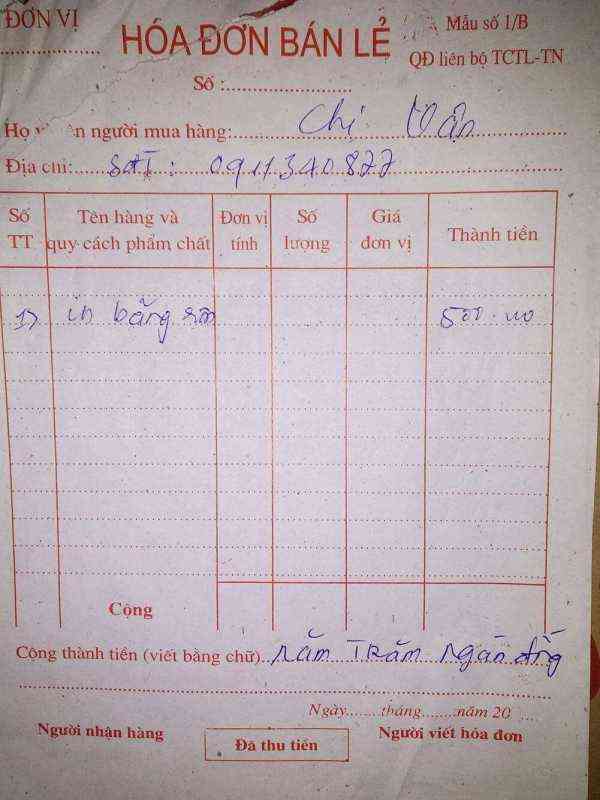 ĐƠN VỊ
HÓA ĐƠN BÁN LẺ
Mẫu số 1/B
QĐ liên bộ TCTL-TN
Số :
Họ và tên người mua hàng: Chị Vận
Địa chỉ: SĐT : 0911340877
Số TT Tên hàng và quy cách phẩm chất Đơn vị tính Số lượng Giá đơn vị Thành tiền
1) in băng rôn 500.000
Cộng
Cộng thành tiền (viết bằng chữ) Năm Trăm Ngàn đồng
Ngày tháng năm 20
Người nhận hàng
Đã thu tiền
Người viết hóa đơn